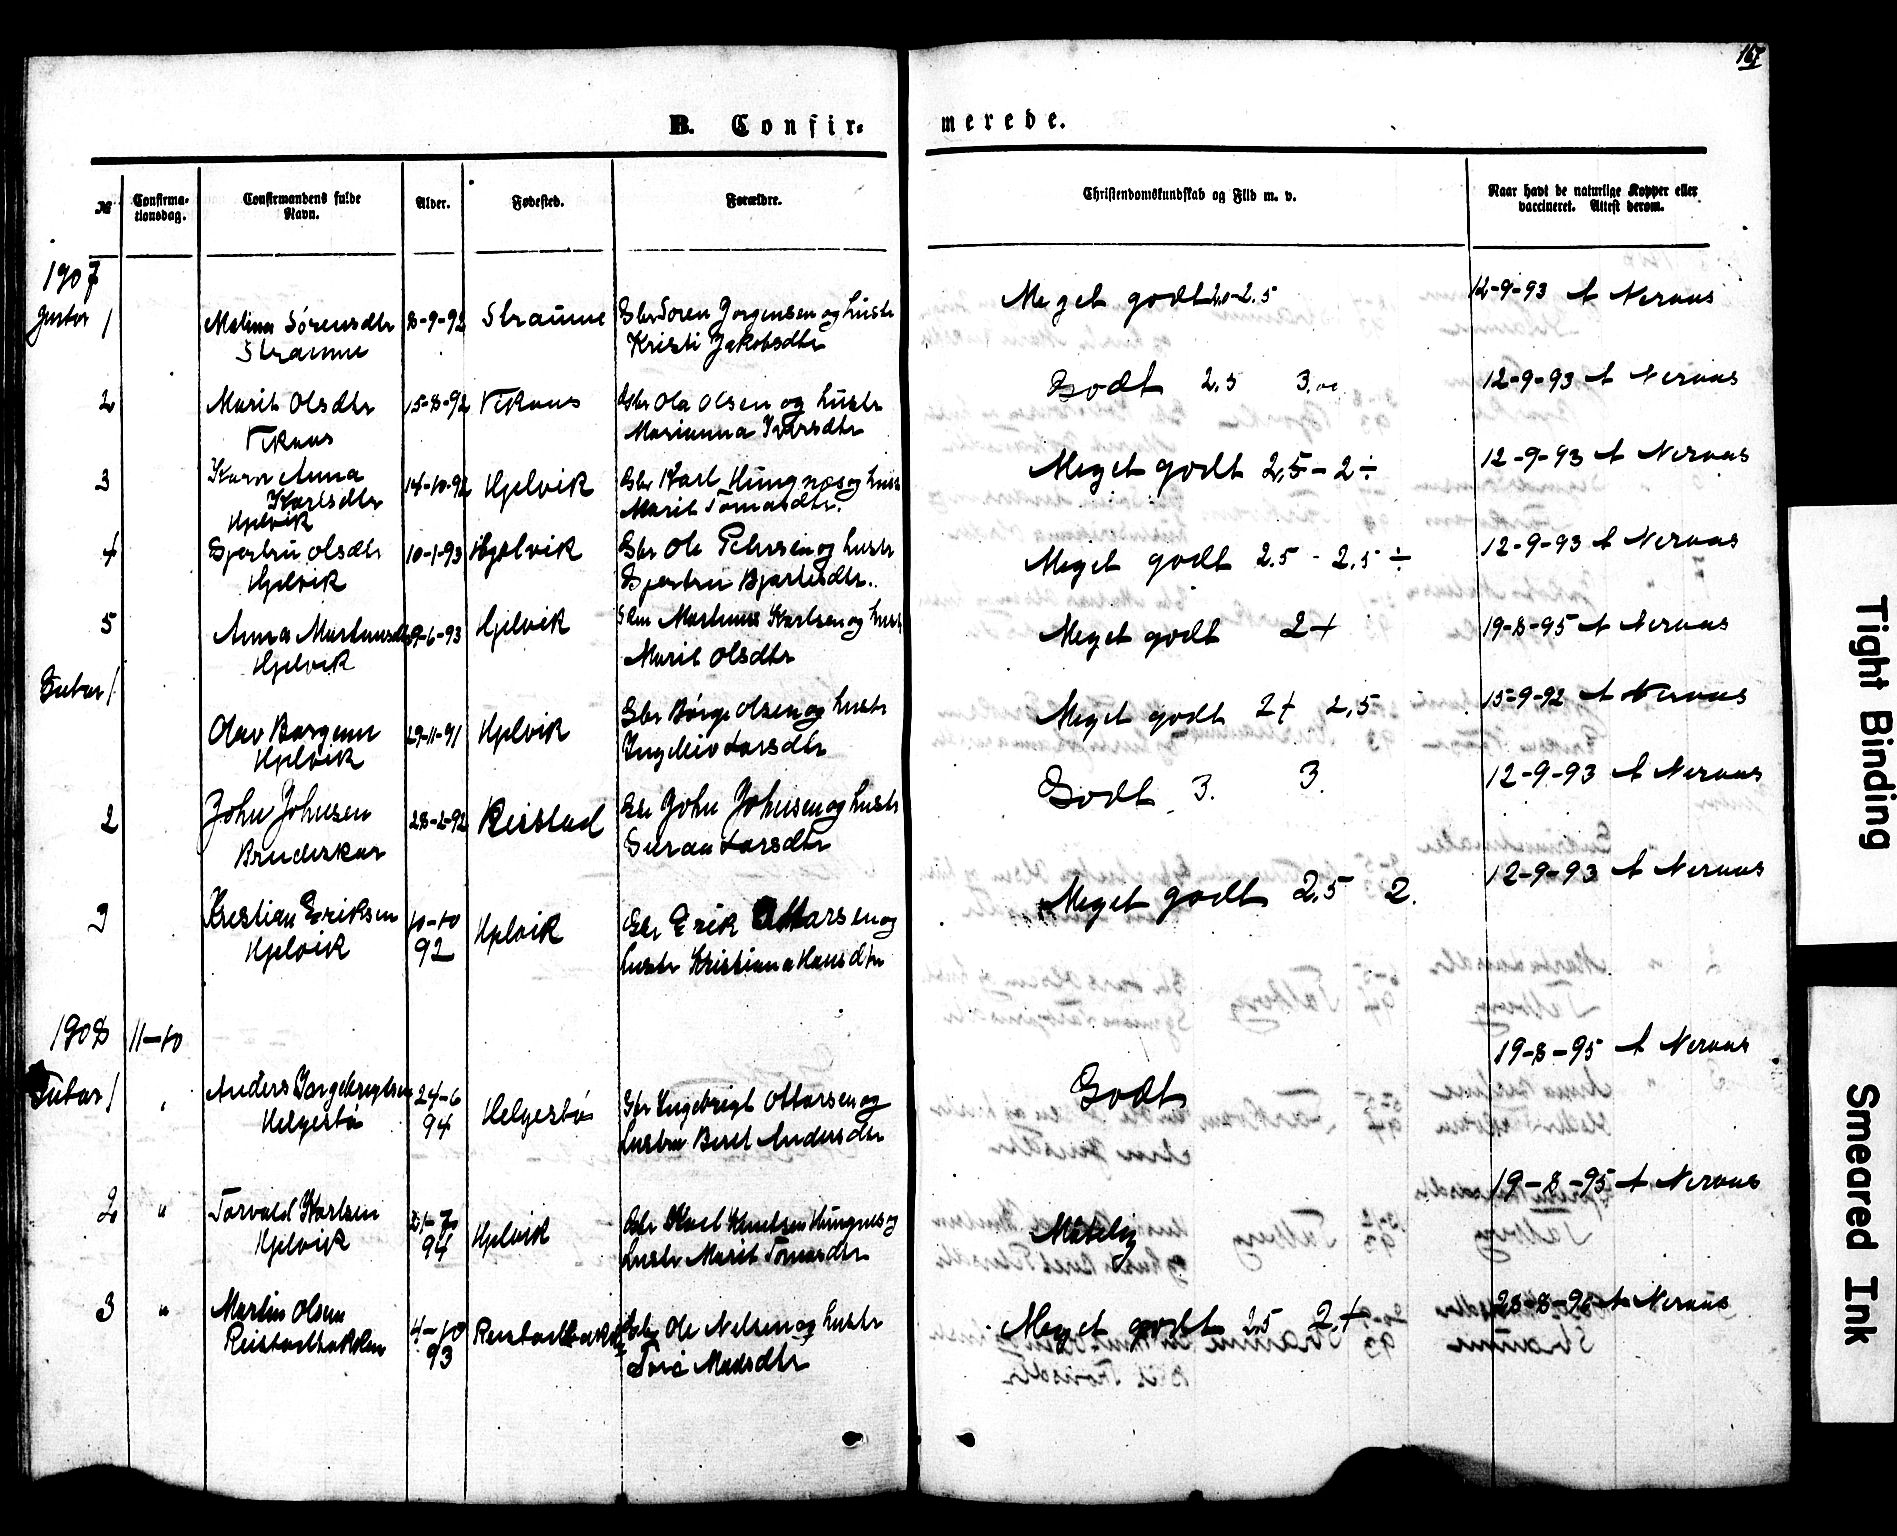 167
B. Confir- merede.
№ Confirma-tionsdag. Confirmandens fulde Navn. Alder. Fødested. Forældre. Christendomskundskab og Flid m. v. Naar havt de naturlige Kopper eller vaccineret. Attest derom.
1907
1 Malina Sörensdtr 8-9-92 Straume Gbr Soren Jorgensen og hustr Meget godt 2.0-2.5 12-9-93 A Neraas
Straume Kristi Jakobsdtr
2 Marit Olsdtr 15-8-92 Vikaas Gbr Ola Olsen og hustr Godt 2.5 3.00 12-9-93 A Neraas
Vikaas Marianna Ivarsdtr
3 Karn Anna 14-10-92 Hjelvik Gbr Karl Hungnæs og hustr Meget godt 2,5-2÷ 12-9-93 A Neraas
Karlsdtr Marit Tomasdtr.
Hjelvik
4 Gjertru Olsdtr 10-1-93 Hjelvik Gbr Ole Petersen og hustr Meget godt 2.5 - 2.5 ÷ 12-9-93 A Neraas
Hjelvik Gjertru Bjartesdtr.
5 Anna Martinusdtr 9-6-93 Hjelvik Gbr Martinus Karlsen og hustr Meget godt 2+ 19-8-95 A Neraas
Hjelvik Marit Olsdtr
Gutar 1
Olav Børgesen 29-11-91 Hjelvik Gbr Børge Olsen og hustr Meget godt 2+ 2,5 15-9-92 A Neraas
Hjelvik Ingeleiv Larsdtr
2 John Johnsen 28-2-92 Reistad Gbr John Johnsen og hustr Godt 3. 3. 12-9-93 A Neraas
Bruderkar Larsdtr
3 Kristian Eriksen 10-10 92 Hjelvik Gbr Erik Ottarsen og Meget godt 2.5 2. 12-9-93 A Neraas
Hjelvik hustr Kristiana Hansdtr
1908 11-10 19-8-95 A Neraas
Gutar 1 Anders Ingebregtsen 24-6 94 Helgestø Gbr Ingebrigt Ottarsen og Godt
Helgestø hustru Beret Andersdtr
2 " Torvald Karlsen 21-7 94 Hjelvik Gbr Karl Knutsen Hungnes og Måtelig 19-8-95 A Neraas
Hjelvik hustr Marit Tomasdtr
3 " Martin Olsen 4-10 93 Reistadbakk Gbr Ole Nelsen og hustr Meget godt 2.5 2.+ 28-8-96 A Neraas
Reistadbakken Madsdtr
Tight Binding
Smeared Ink